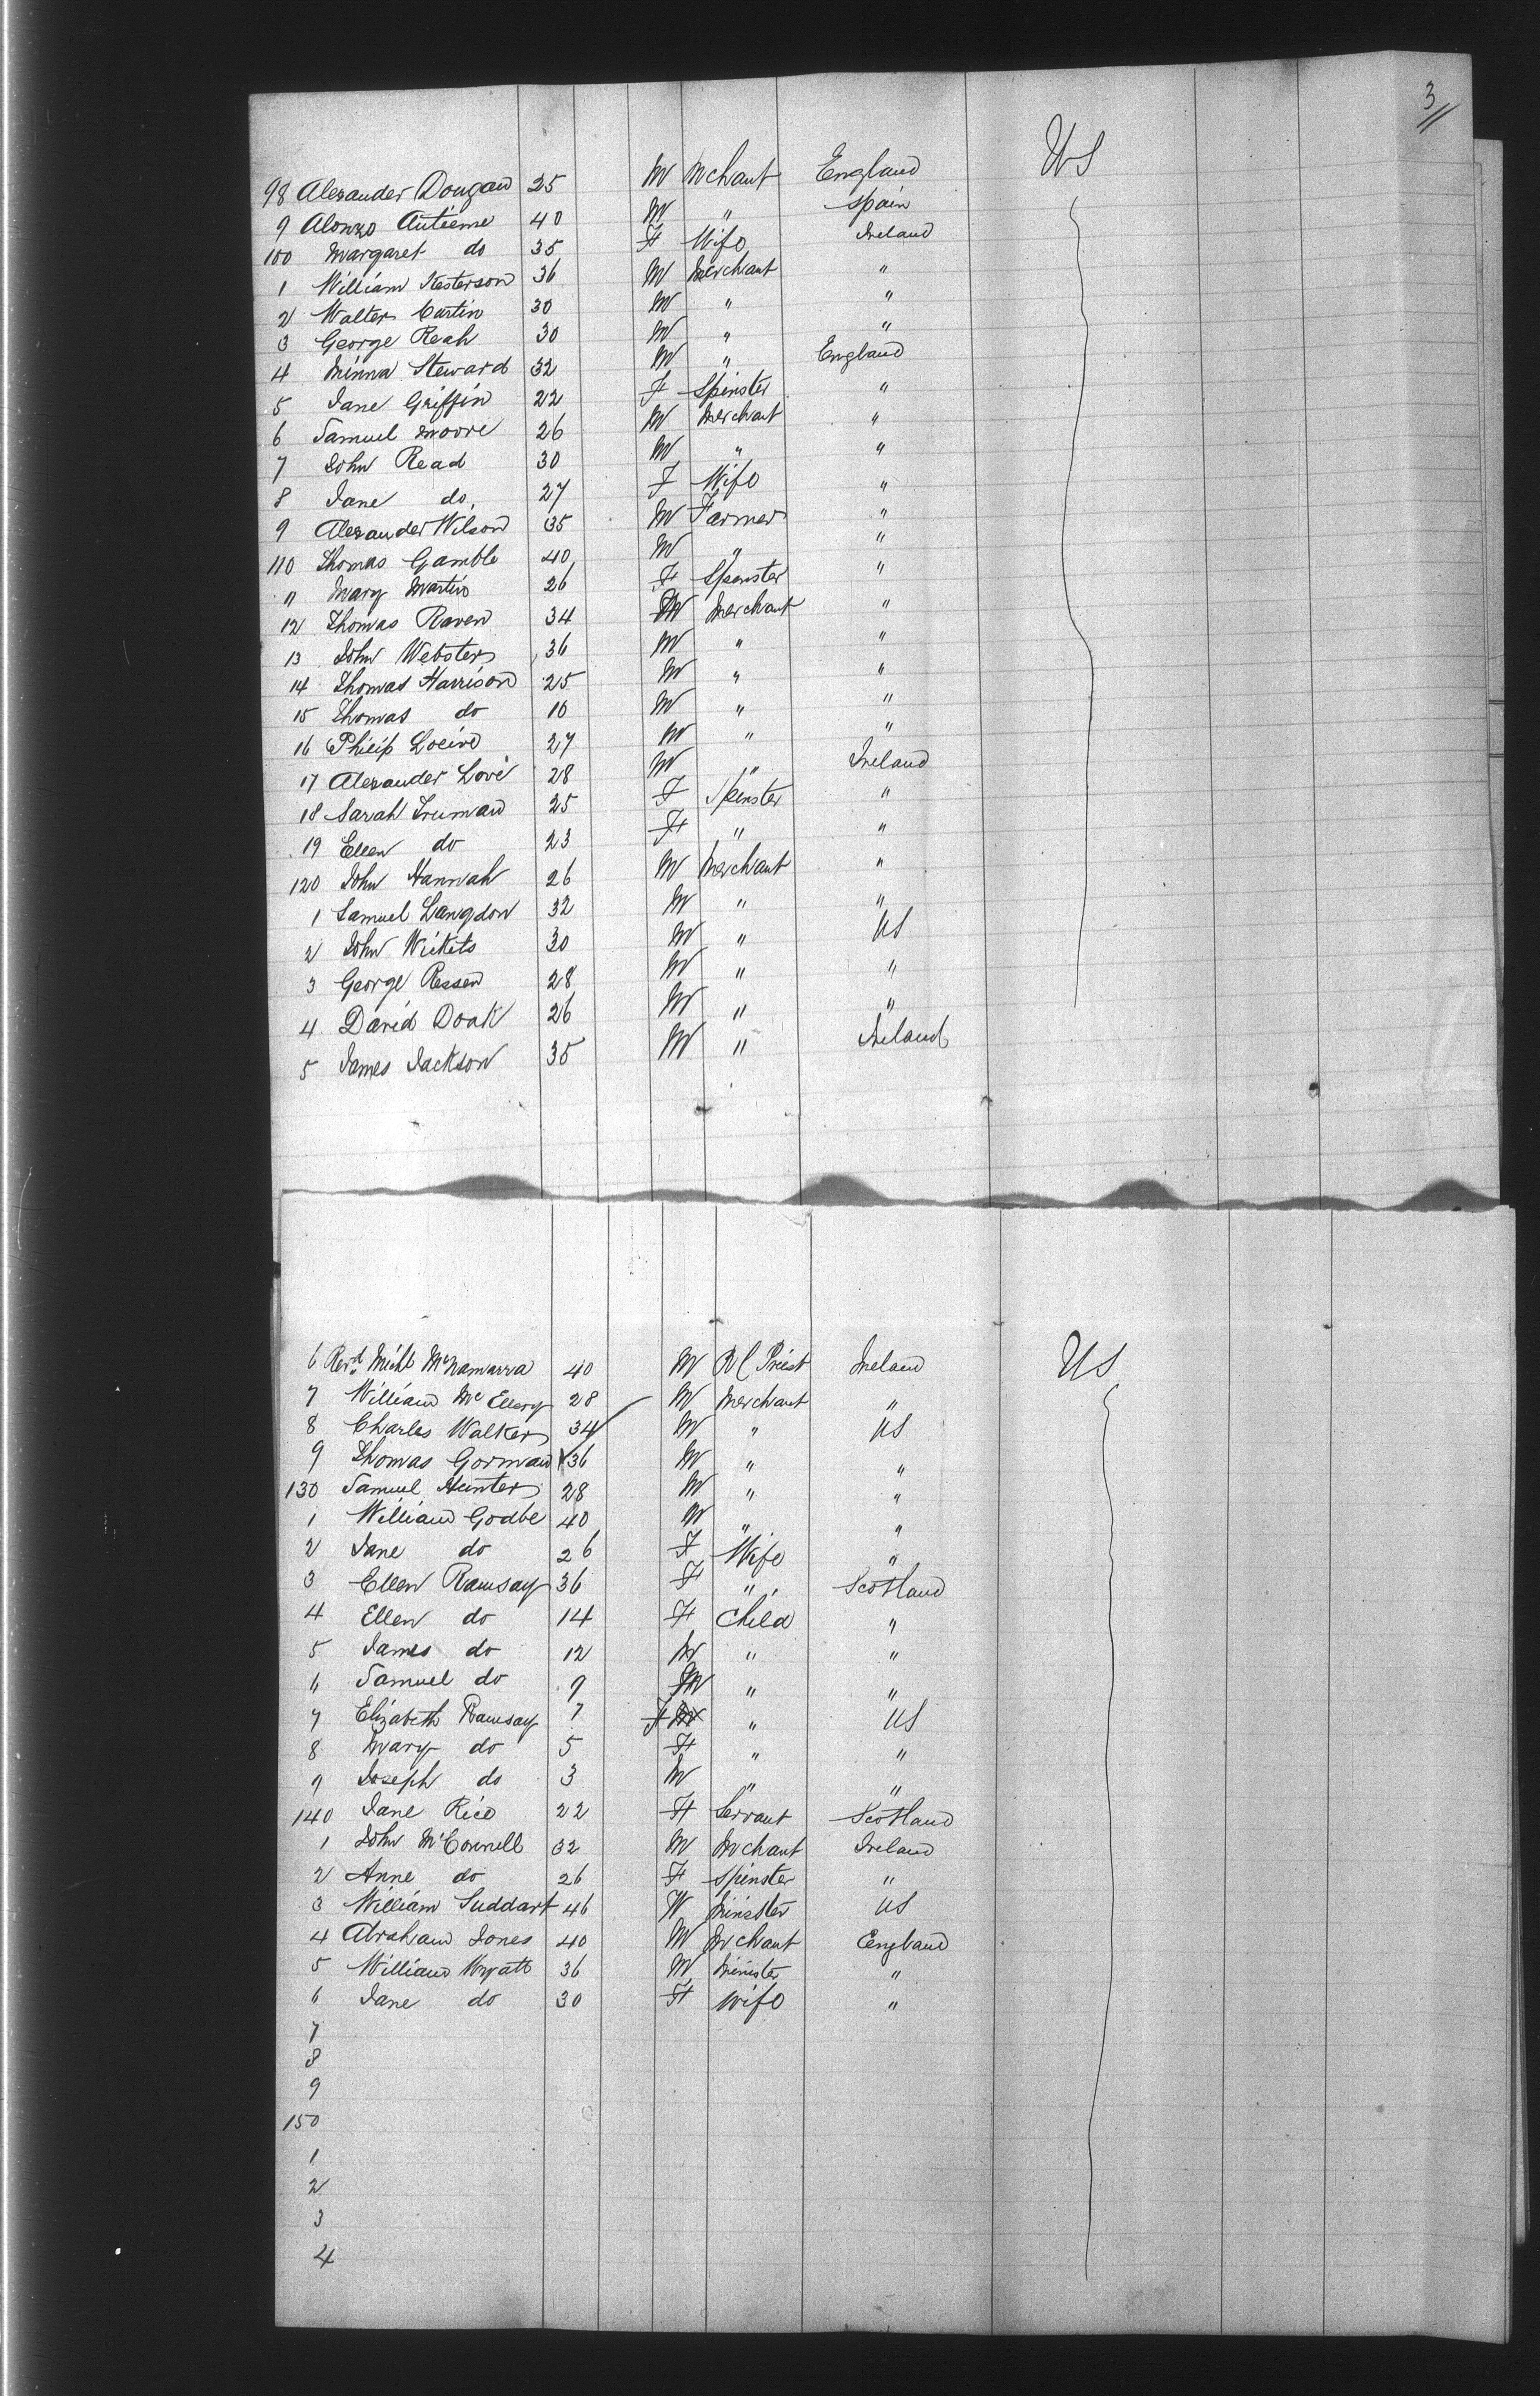 3
98 Alexander Dougan 25 M Mchant England US
9 Alonzo Autieme 40 M " Spain
100 Margaret do 35 F Wife Ireland
1 William Kesterson 36 M Merchant "
2 Walter Cartin 30 M " "
3 George Reah 30 M " "
4 Minna Steward 32 M " England
5 Jane Griffin 22 F Spinster "
6 Samuel Moore 26 M Merchant "
7 John Read 30 M " "
8 Jane do 27 F Wife "
9 Alexander Wilson 35 M Farmer "
110 Thomas Gamble 40 M " "
" Mary Martin 26 F Spinster "
12 Thomas Raven 34 M Merchant "
13 John Webster 36 M " "
14 Thomas Harrison 25 M " "
15 Thomas do 10 M " "
16 Philip 27 M " "
17 Alexander Love 28 M " Ireland
18 Sarah Truman 25 F Spinster "
19 Ellen do 23 F " "
120 John Hannah 26 M Merchant "
1 Samuel Langdon 32 M " "
2 John Wickets 30 M " US
3 George Ressen 28 M " "
4 David Doak 26 M " "
5 James Jackson 35 M " Ireland
6 Revd Michl McNamarra 40 M RC Priest Ireland US
7 William McEllery 28 M Merchant "
8 Charles Walker 34 M " US
9 Thomas Gorman 36 M " "
130 Samuel Hunter 28 M " "
1 William Godbe 40 M " "
2 Jane do 26 F Wife "
3 Ellen Ramsay 36 F " Scotland
4 Ellen do 14 F Child "
5 James do 12 M " "
6 Samuel do 9 M " "
7 Elizabeth Ramsay 7 F M " US
8 Mary do 5 F " "
9 Joseph do 3 M " "
140 Jane Rice 22 F Servant Scotland
1 John McConnell 32 M Mchant Ireland
2 Anne do 26 F Spinster "
3 William Suddart 46 M Minister US
4 Abraham Jones 40 M Mchant England
5 William Wyatt 36 M Minister "
6 Jane do 30 F Wife "
7
8
9
150
1
2
3
4